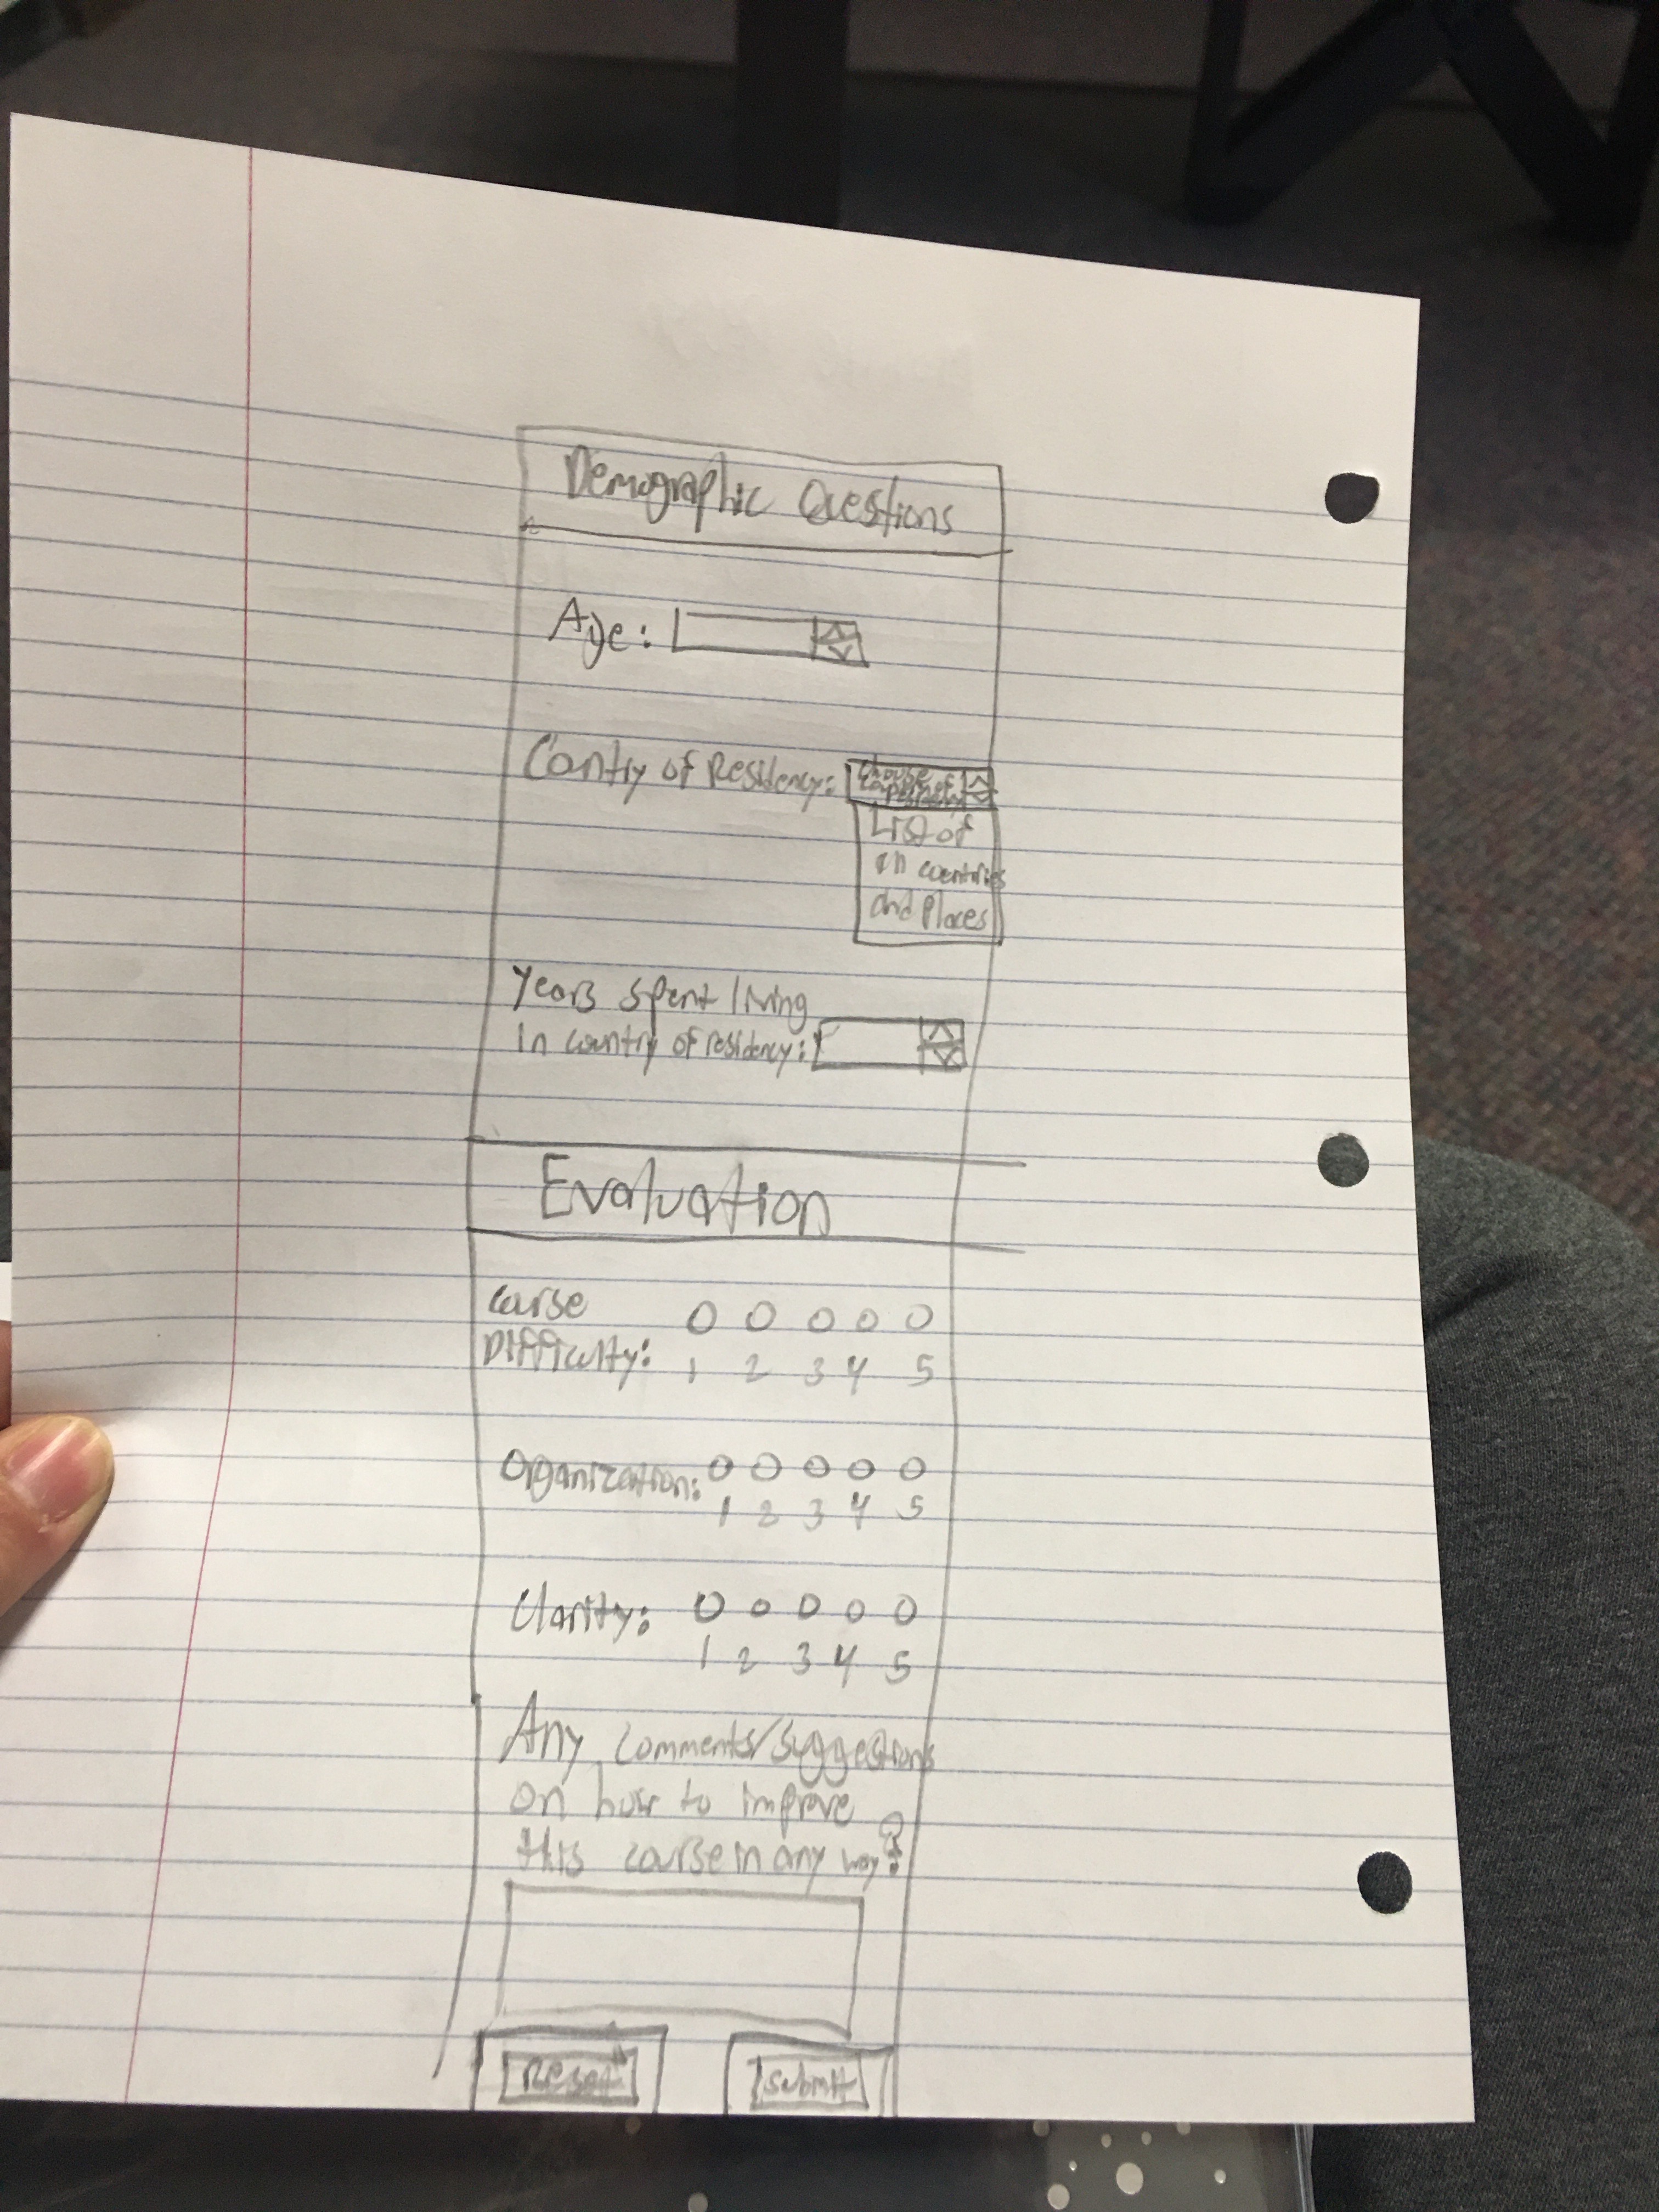 Demographic Questions
Age:
Contry of Residency: Choose
country of
residency
List of
all countries
and Places
Years spent living
in country of residency:
Evaluation
Course
Difficulty:
1 2 3 4 5
Organization:
1 2 3 4 5
Clarity:
1 2 3 4 5
Any comments/suggestions
on how to improve
this course in any way?
Reset Submit